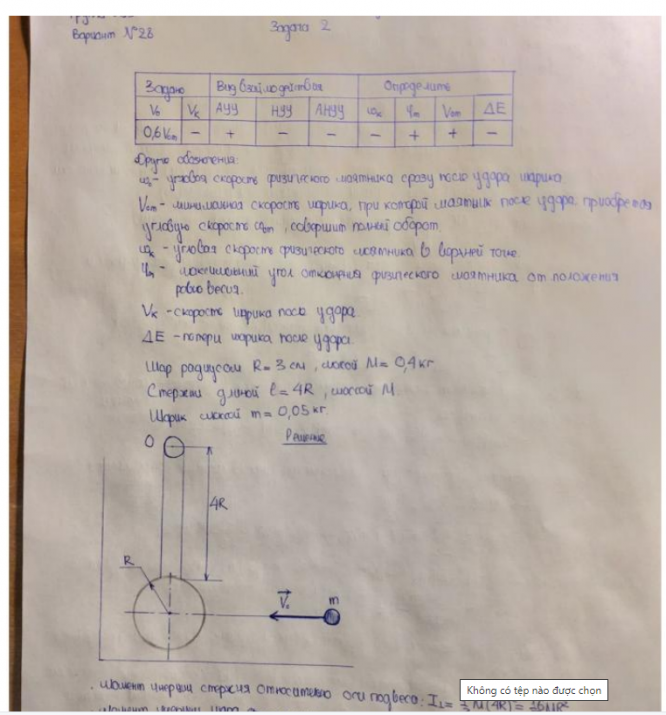 Вариант №28
Задача 2
Задано
Вид взаимодействия
Определить
V₀
Vк
АУУ
НУУ
АНУУ
ωк
φm
V₀m
ΔE
0,6V₀m
–
+
–
–
–
+
+
–
Другие обозначения:
ω₀ - угловая скорость физического маятника сразу после удара шарика
V₀m - минимальная скорость шарика, при которой маятник после удара, приобретая
угловую скорость ω₀m, совершит полный оборот.
ωк - угловая скорость физического маятника в верхней точке.
φm - максимальный угол отклонения физического маятника от положения
равновесия.
Vк - скорость шарика после удара
ΔE - потери шарика после удара
Шар радиусом R = 3 см, массой M = 0,4 кг.
Стержни длиной ℓ = 4R, массой M.
Шарик массой m = 0,05 кг.
Решение
O
4R
R
V₀
m
Момент инерции стержня относительно оси подвеса: I₁ =
Không có tệp nào được chọn